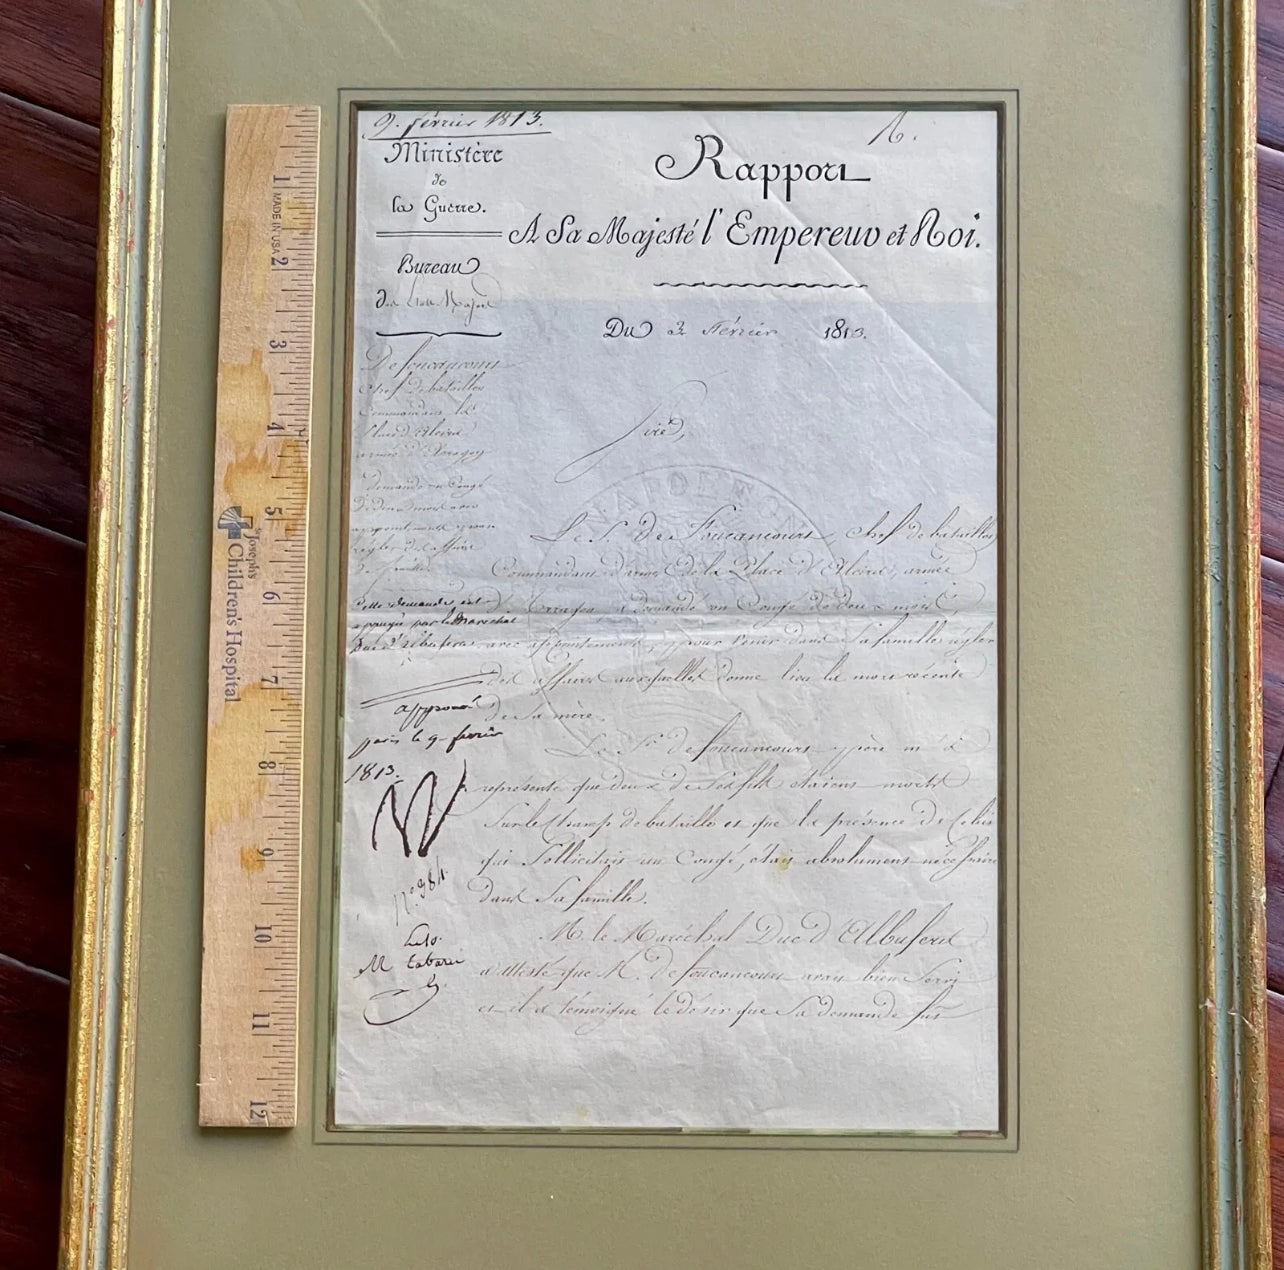 9. février 1813.
Ministère
de
la Guerre.
Bureau
Rapport
A Sa Majesté l'Empereur et Roi.
Du 3 février 1813.
De foucaucourt
chef de bataillon
Commandant la
Place d'
armée d'Arragon
demande un Congé
de deux mois avec
appointements pour
régler des affaires
de famille
Cette demande est
appuyée par le Maréchal
Duc d'Albufera
approuvé
paris le 9 fevrier
1813.
N
N.° 984.
Sire,
NAPOLEON
Le S. de Foucaucourt, chef de bataillon
Commandant d'armes de la Place d' armée
d'Arragon, a demandé un Congé de deux mois,
avec appointements, pour venir dans sa famille régler
des affaires auxquelles donne lieu la mort récente
de sa mère.
Le Sr. de foucaucourt père m'a
représenté que deux de ses fils étaient morts
sur le Champ de bataille et que la présence de Celui
qui Sollicitait un Congé, était absolument nécessaire
dans sa famille.
M. le Maréchal Duc d'Albufera
atteste que M. de foucaucourt avait bien Servi
et il a témoigné le désir que sa demande fut
MADE IN USA
St. Joseph's
Children's Hospital
1
2
3
4
5
6
7
8
9
10
11
12